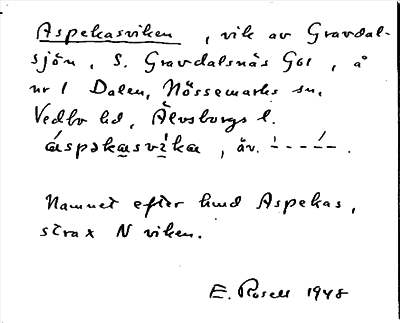 Aspekasviken, vik av Gravdal-
sjön, S. Gravdalsnäs G61, å
nr 1 Dalen, Nössemarks sn.
Vedbo hd, Älvsborgs l.
áspəkasvìka, äv. ˈ----́-.
Namnet efter hmd Aspekas,
strax N viken.
E. Rosell 1948